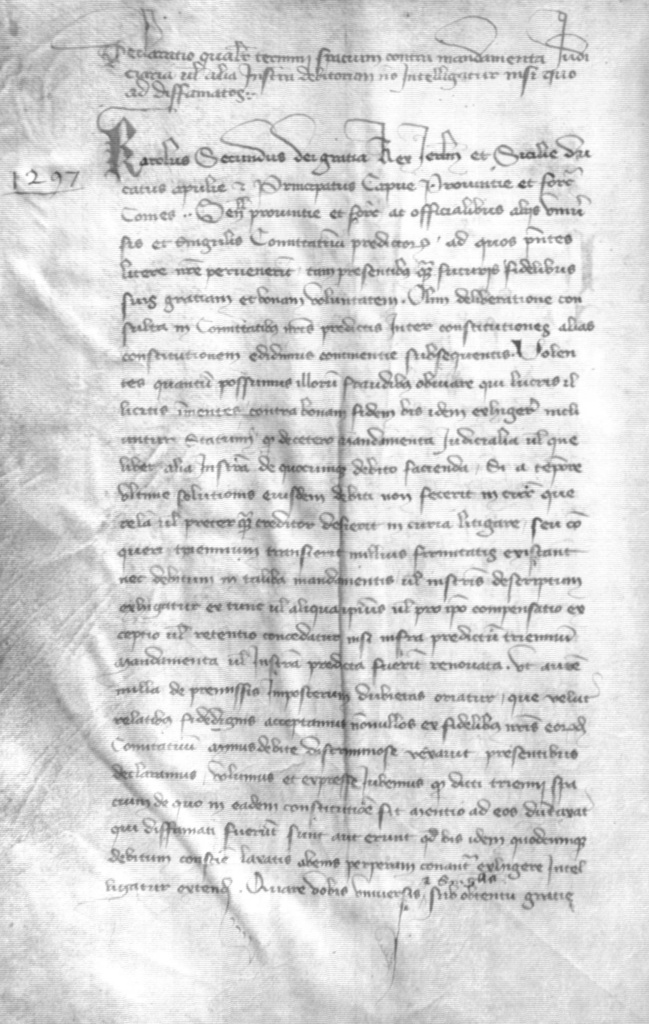 Declaratio qualr termini statutum contra mandamenta Judi
ciaria ul alia Instra debitorum no Intelligatur nisi quo
ad diffamatos
1297
Karolus Secundus dei gratia Rex Jerlm et Sicilie du
catus apulie et Principatus Capue Prouintie et forc
Comes Sen prouintie et forc ac officialibus alijs vniu
sis et singulis Comitatuu predictor ad quos pntes
litere nre peruenerit tam presentibus q futuris fidelibus
suis gratiam et bonam voluntatem Olim deliberatione con
sulta in Comitatibus nris predictis Inter constitutiones alias
constitutionem edidimus continentie subsequentis Volen
tes quantu possumus illoru fraudibus obuiare qui lucris il
licitis inhientes contra bonam fidem bis idem exhiger moli
untur Statuim q decetero mandamenta Judicialia ul que
libet alia Instra de quocunq debito facienda Si a tepore
vltime solutionis eiusdem debiti non fecerit in cur que
rela ul preter q creditor desierit in curia litigare seu co
queri triennium transierit nullius firmitatis existant
nec debitum in talibus mandamentis ul instris descriptum
exhigatur ex tunc ul aliqua ipius ul pro ipo compensatio ex
ceptio ul retentio concedatur nisi infra predictu trienniu
mandamenta ul Instra predicta fuerit renouata Vt aute
nulla de premissis Imposterum dubietas oriatur que velut
relatibus fidedignis accepimus nonullos ex fidelibus nris eorud
Comitatuu minus debite discriminose vexauit presentibus
declaramus volumus et expresse Jubemus q dicti triennij sta
tutum de quo in eadem constitutioe fit mentio ad eos dutaxat
qui diffamati fuerut sunt aut erunt qd bis idem quodcumq
debitum conscie laxatis abenis perperam conant exhigere Intel
ligatur extend Quare vobis vniuersis et Singulis sub obtentu gratie